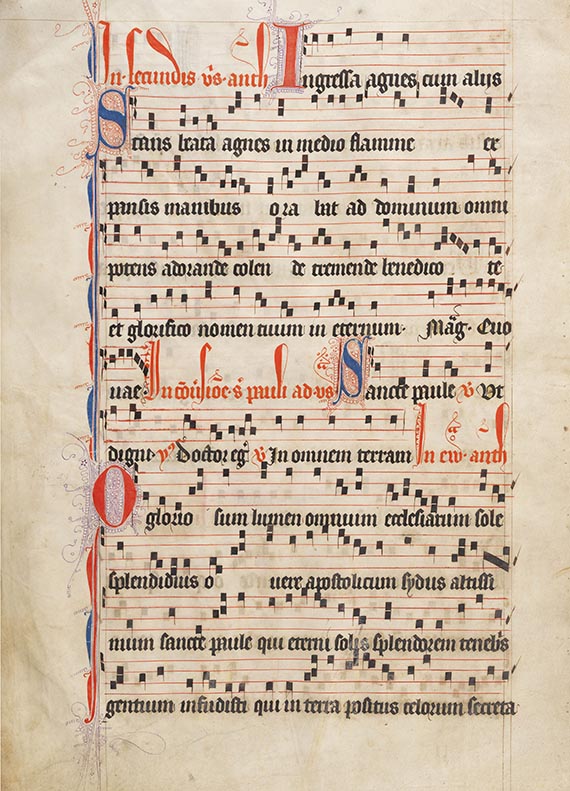 In secundis vs. anth Ingressa agnes cum aliis
Stans beata agnes in medio flamme ex
pansis manibus ora bat ad dominum omni
potens adorande colen de tremende benedico te
et glorifico nomen tuum in eternum. Mag. Quo
uae In conversioe s pauli ad vs Sancte paule v Vt
digni. v Doctor eg v In omnem terram In ew. anth
O glorio sum lumen omnium ecclesiarum sole
splendidius o vere apostolicum sydus altissi
mum sancte paule qui eterni solis splendorem tenebs
gentium infudisti qui in terra positus celorum secreta